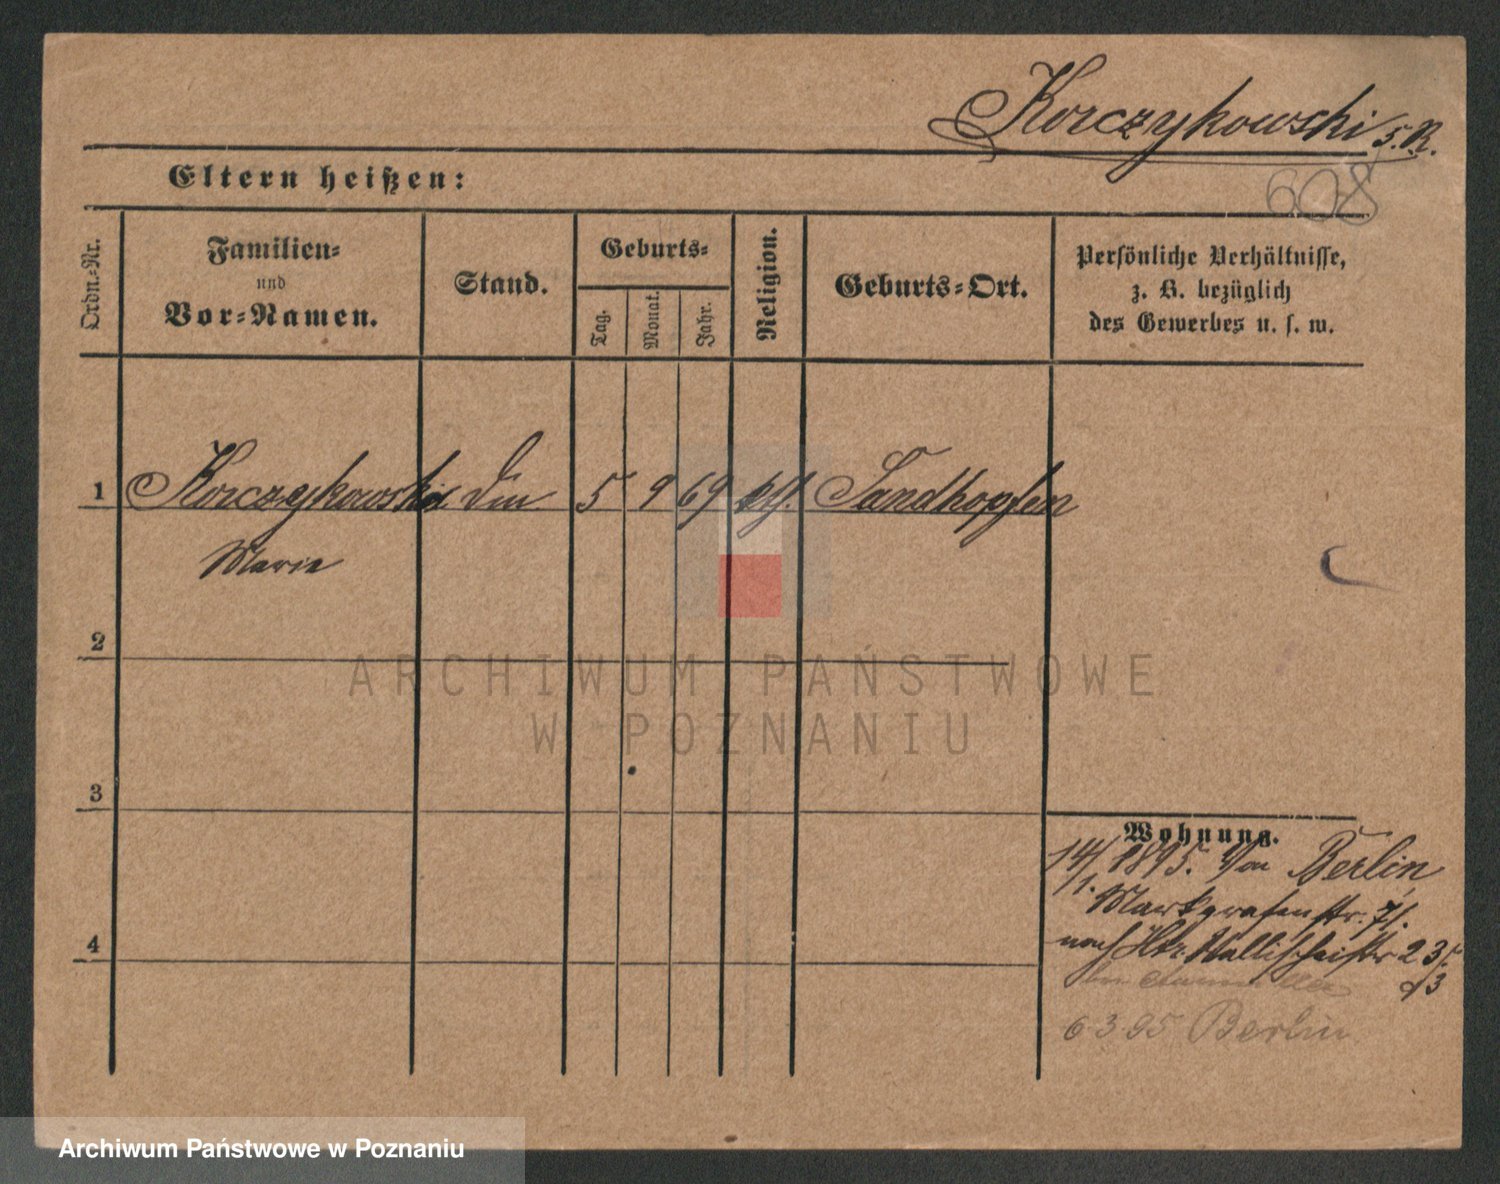 Korczykowski 5. R.
608
Eltern heißen:
Ordn.=Nr.
Familien=
und
Vor=Namen.
Stand.
Geburts=
Tag.
Monat.
Jahr.
Religion.
Geburts=Ort.
Persönliche Verhältnisse,
z. B. bezüglich
des Gewerbes u. s. w.
1 Korczykowski 5 9 69 Sandhopfen
Marie
2
3
4
Wohnung.
14/1. 1895. Von Berlin,
Markgrafenstr. 71.
nach 23
6 3 95 Berlin
ARCHIWUM PAŃSTWOWE
W POZNANIU
Archiwum Państwowe w Poznaniu